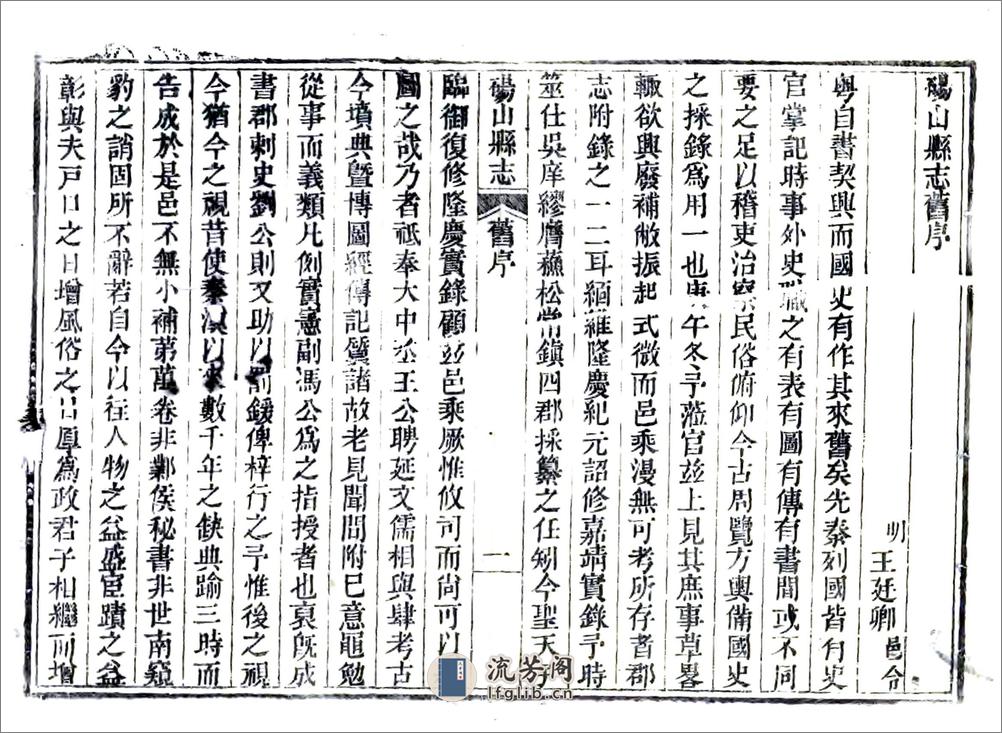 碭山縣志舊序
明 王廷卿 邑令
粵自書契興而國史有作其來舊矣先秦列國皆有史
官掌記時事外史職之有表有圖有傳有書間或不同
要之足以稽吏治察民俗俯仰今古周覽方輿備國史
之採錄爲用一也庚午冬予蒞官玆上見其庶事草畧
輒欲興廢補敝振起式微而邑乘漫無可考所存者郡
志附錄之一二耳緬維隆慶紀元詔修嘉靖實錄予時
筮仕吳庠繆膺蘇松常鎮四郡採纂之任矧今聖天子
碭山縣志 舊序 一
臨御復修隆慶實錄顧玆邑乘厥惟攸司而尚可以
圖之哉乃者祇奉大中丞王公聘延文儒相與肆考古
今墳典曁博圖經傳記質諸故老見聞間附已意黽勉
從事而義類凡例實憲副馮公爲之指授者也裒旣成
書郡刺史劉公則又助以罰鍰俾梓行之予惟後之視
今猶今之視昔使秦漢以來數千年之缺典踰三時而
告成於是邑不無小補第萬卷非鄴侯秘書非世南窺
豹之誚固所不辭若自今以往人物之益盛宦蹟之益
彰與夫戸口之日增風俗之日厚爲政君子相繼而增
流芳阁
lfglib.cn